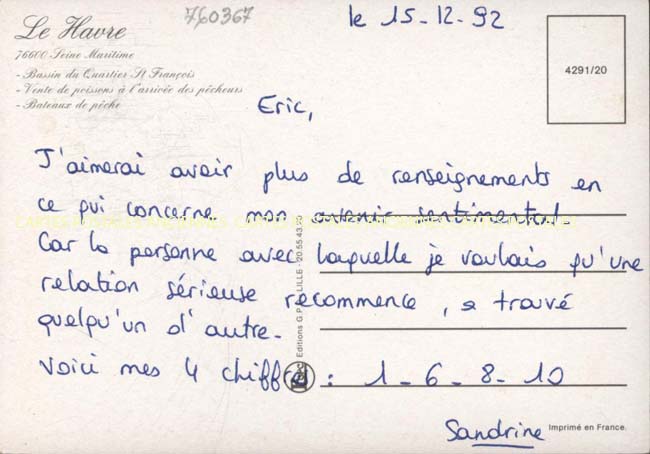 Le Havre
76600 Seine Maritime
- Bassin du Quartier St François
- Vente de poissons à l'arrivée des pêcheurs
- Bateaux de pêche
760367
le 15-12-92
4291/20
Eric,
J'aimerai avoir plus de renseignements en
ce qui concerne mon avenir sentimental.
Car la personne avec laquelle je voulais qu'une
relation sérieuse recommence, a trouvé
quelqu'un d'autre.
Voici mes 4 chiffres : 1-6-8-10
Sandrine
Imprimé en France.
Editions G. LILLE - 20.55.43.20